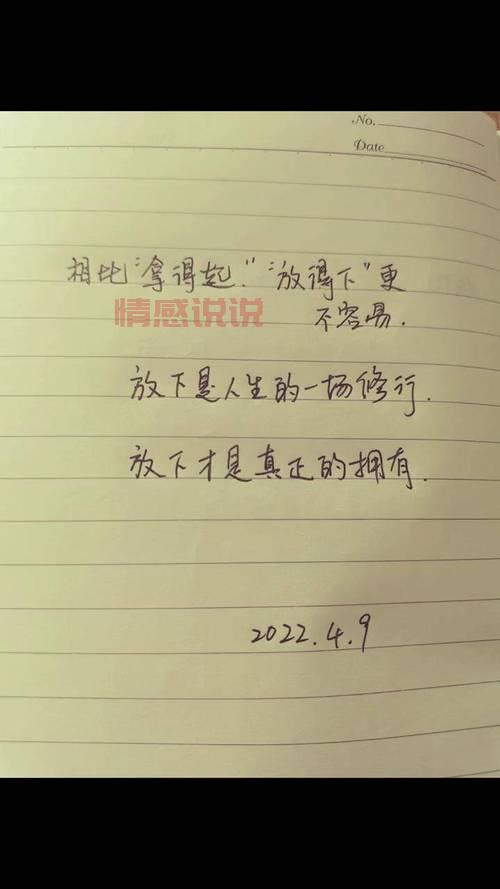 No.
Date
相比“拿得起.”“放得下”更
情感说说
不容易.
放下是人生的一场修行.
放下才是真正的拥有.
2022.4.9